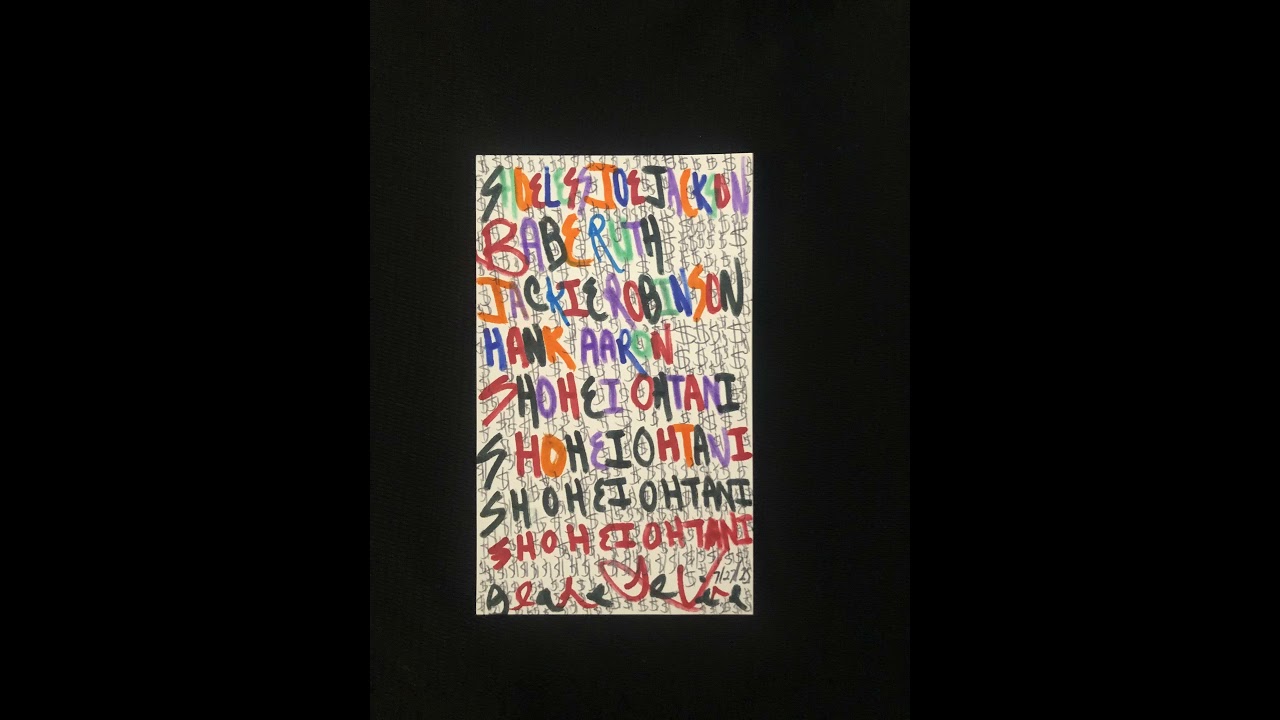 SHOELESS JOE JACKSON
BABE RUTH
JACKIE ROBINSON
HANK AARON
SHOHEI OHTANI
SHOHEI OHTANI
SHOHEI OHTANI
SHOHEI OHTANI
7/27/25